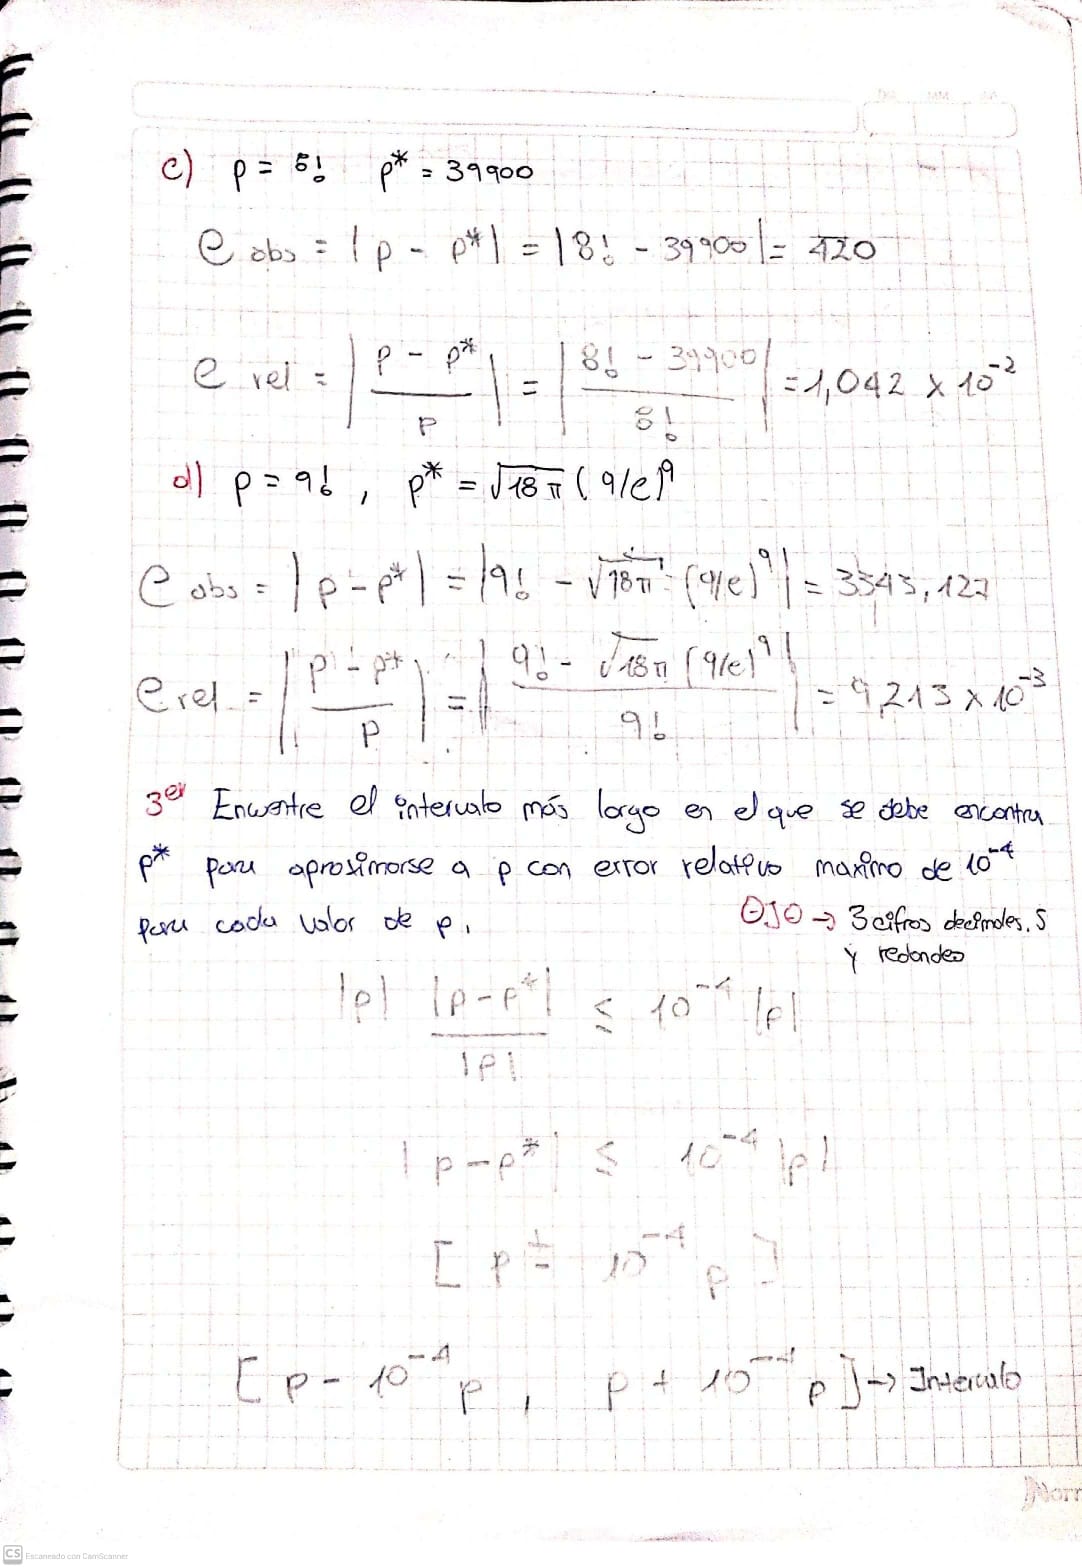 c) p = 8! p* = 39900
e abs = |p - p*| = |8! - 39900| = 420
e rel = |p - p* / p| = |8! - 39900 / 8!| = 1,042 x 10^-2
d) p = 9!, p* = √18π (9/e)^9
e abs = |p - p*| = |9! - √18π · (9/e)^9| = 3343,127
e rel = |p - p* / p| = |9! - √18π (9/e)^9 / 9!| = 9,213 x 10^-3
3er Encuentre el intervalo más largo en el que se debe encontra
p* para aproximarse a p con error relativo maximo de 10^-4
para cada valor de p.
OJO → 3 cifras decimales. S
y redondeo
|p| |p - p*| / |p| ≤ 10^-4 |p|
|p - p*| ≤ 10^-4 |p|
[p ± 10^-4 p]
[p - 10^-4 p, p + 10^-4 p] → Intervalo
Norr
CS Escaneado con CamScanner